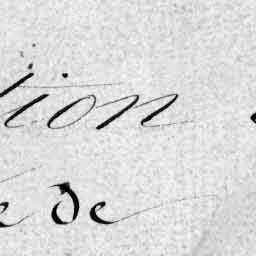 tion
e de